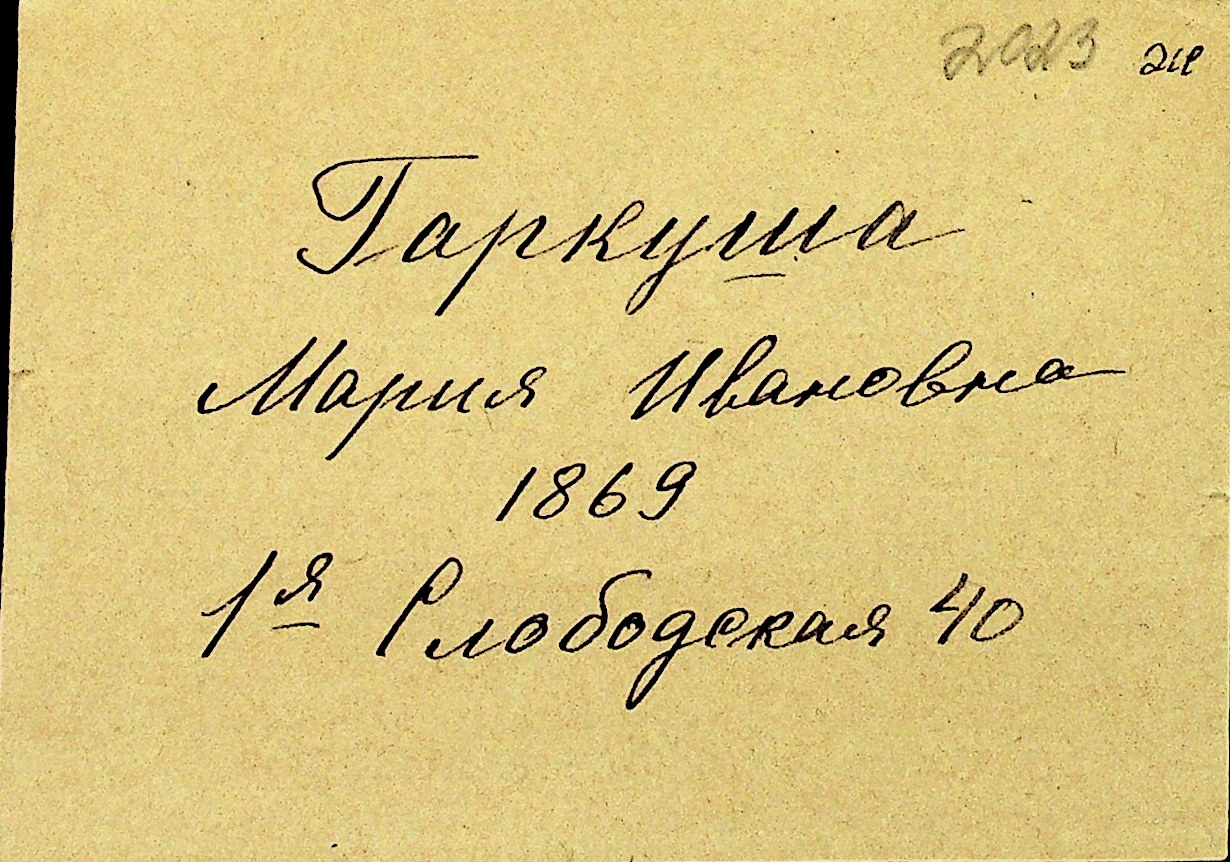 2023
Гаркуша
Мария Ивановна
1869
1я Слободская 40